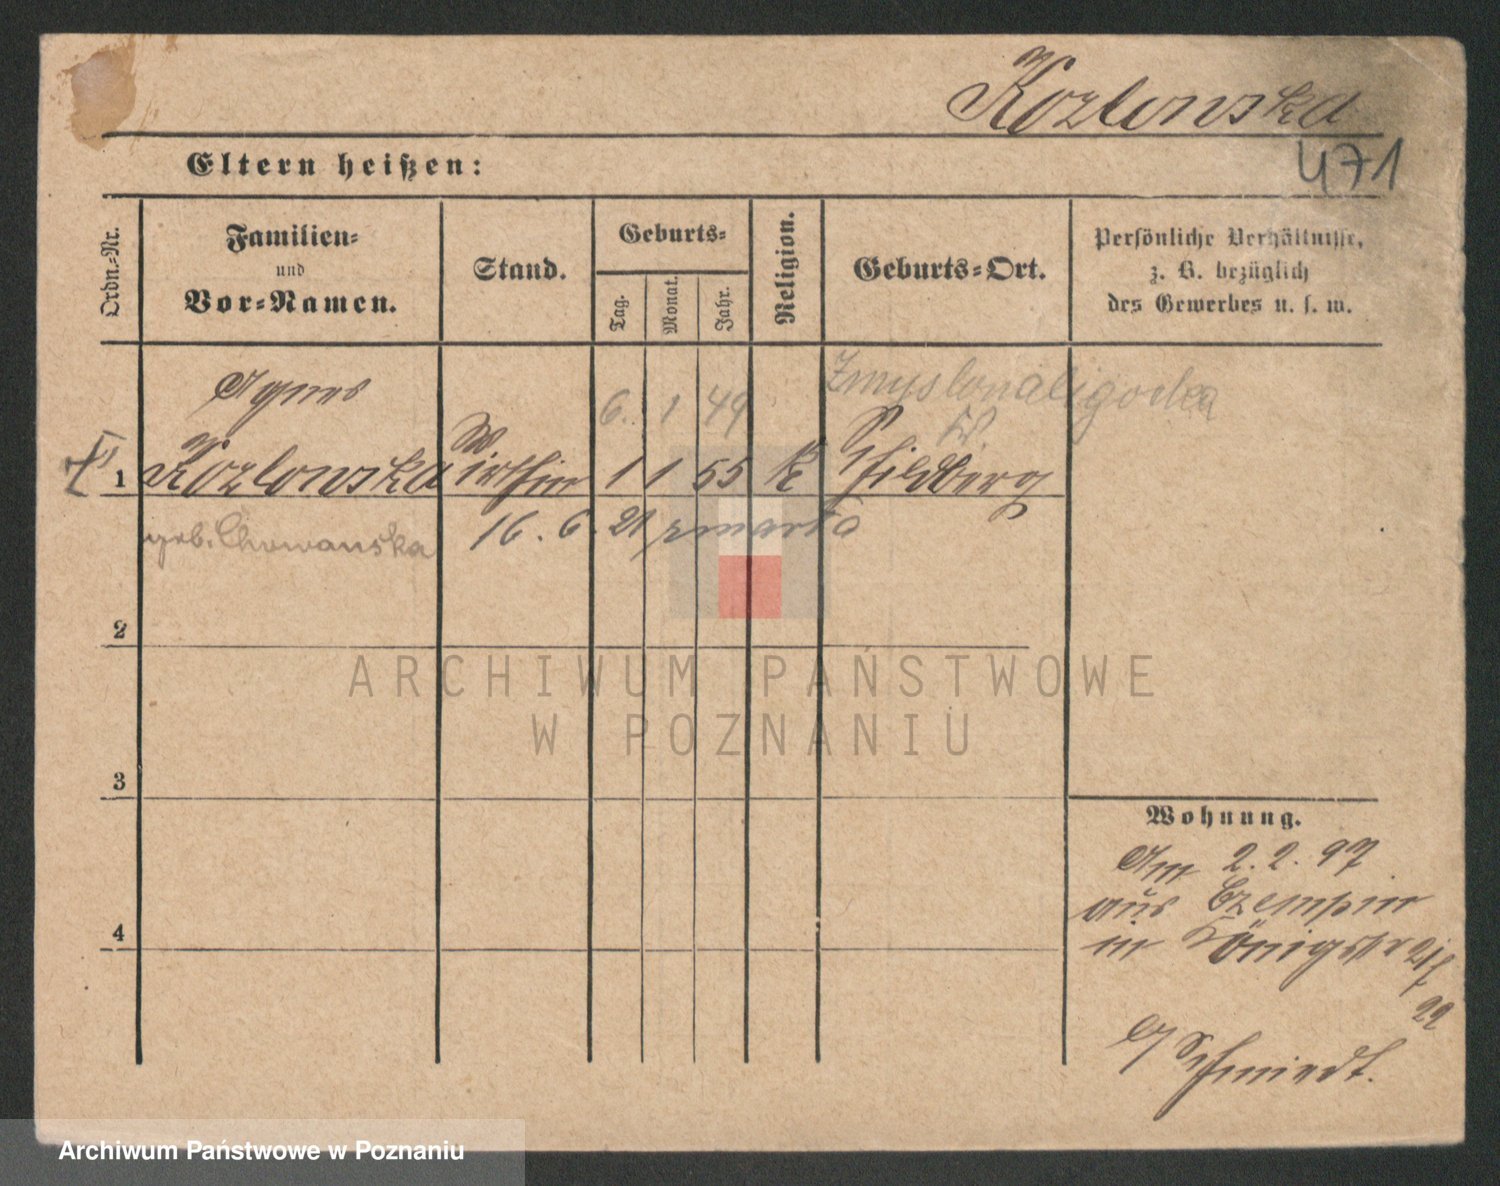 Kozlowska
471
Eltern heißen:
Ordn.-Nr.
Familien-
und
Vor-Namen.
Stand.
Geburts-
Tag.
Monat.
Jahr.
Religion.
Geburts-Ort.
Persönliche Verhältnisse,
z. B. bezüglich
des Gewerbes u. s. w.
Agnes
6. 1 49
1 Kozlowska Wirthin 1 1 55 k Schildberg
geb. Chowanska
16. 6. 21 zmarła
2
3
4
Wohnung.
Am 2.2.97
aus Czempin
in Königstr 21/
22
b/ Schmidt.
ARCHIWUM PAŃSTWOWE
W POZNANIU
Archiwum Państwowe w Poznaniu